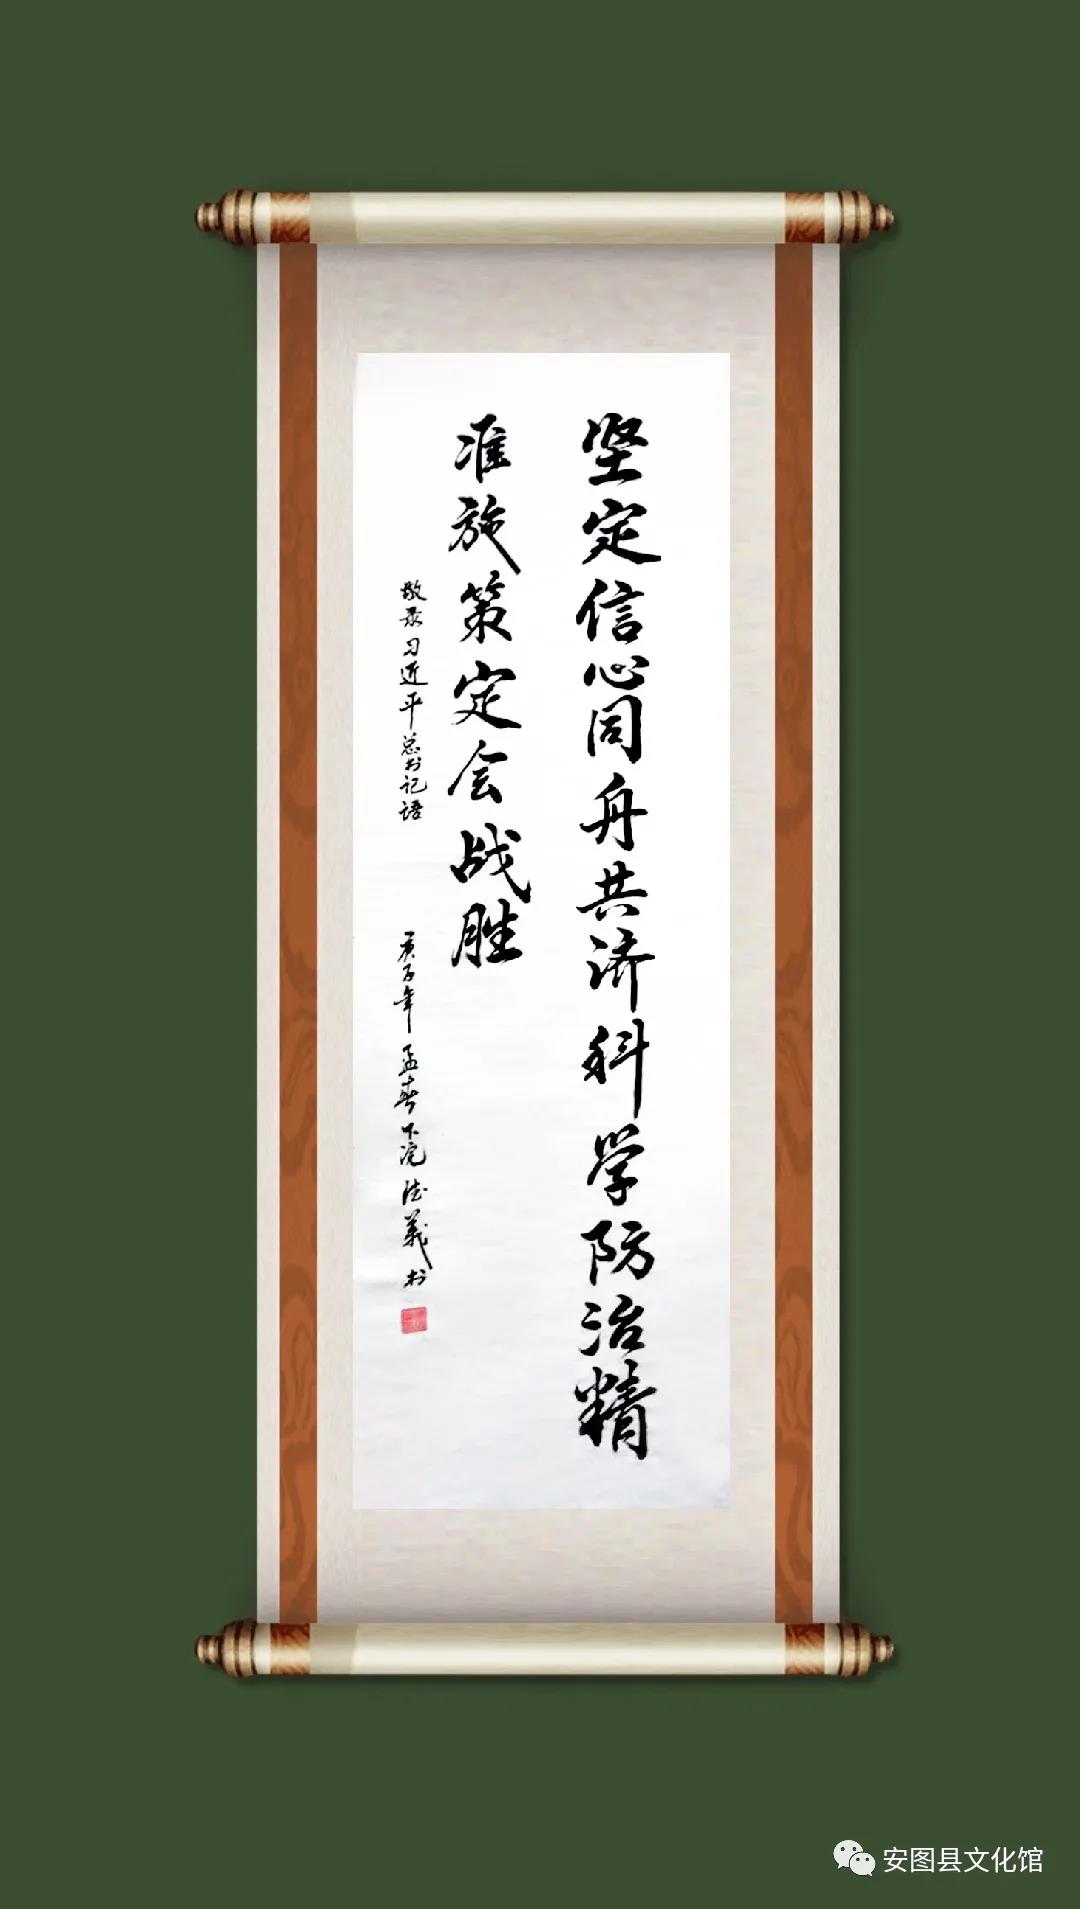 坚定信心同舟共济科学防治精
准施策定会战胜
敬录习近平总书记语
庚子年孟春下浣德义书
安图县文化馆